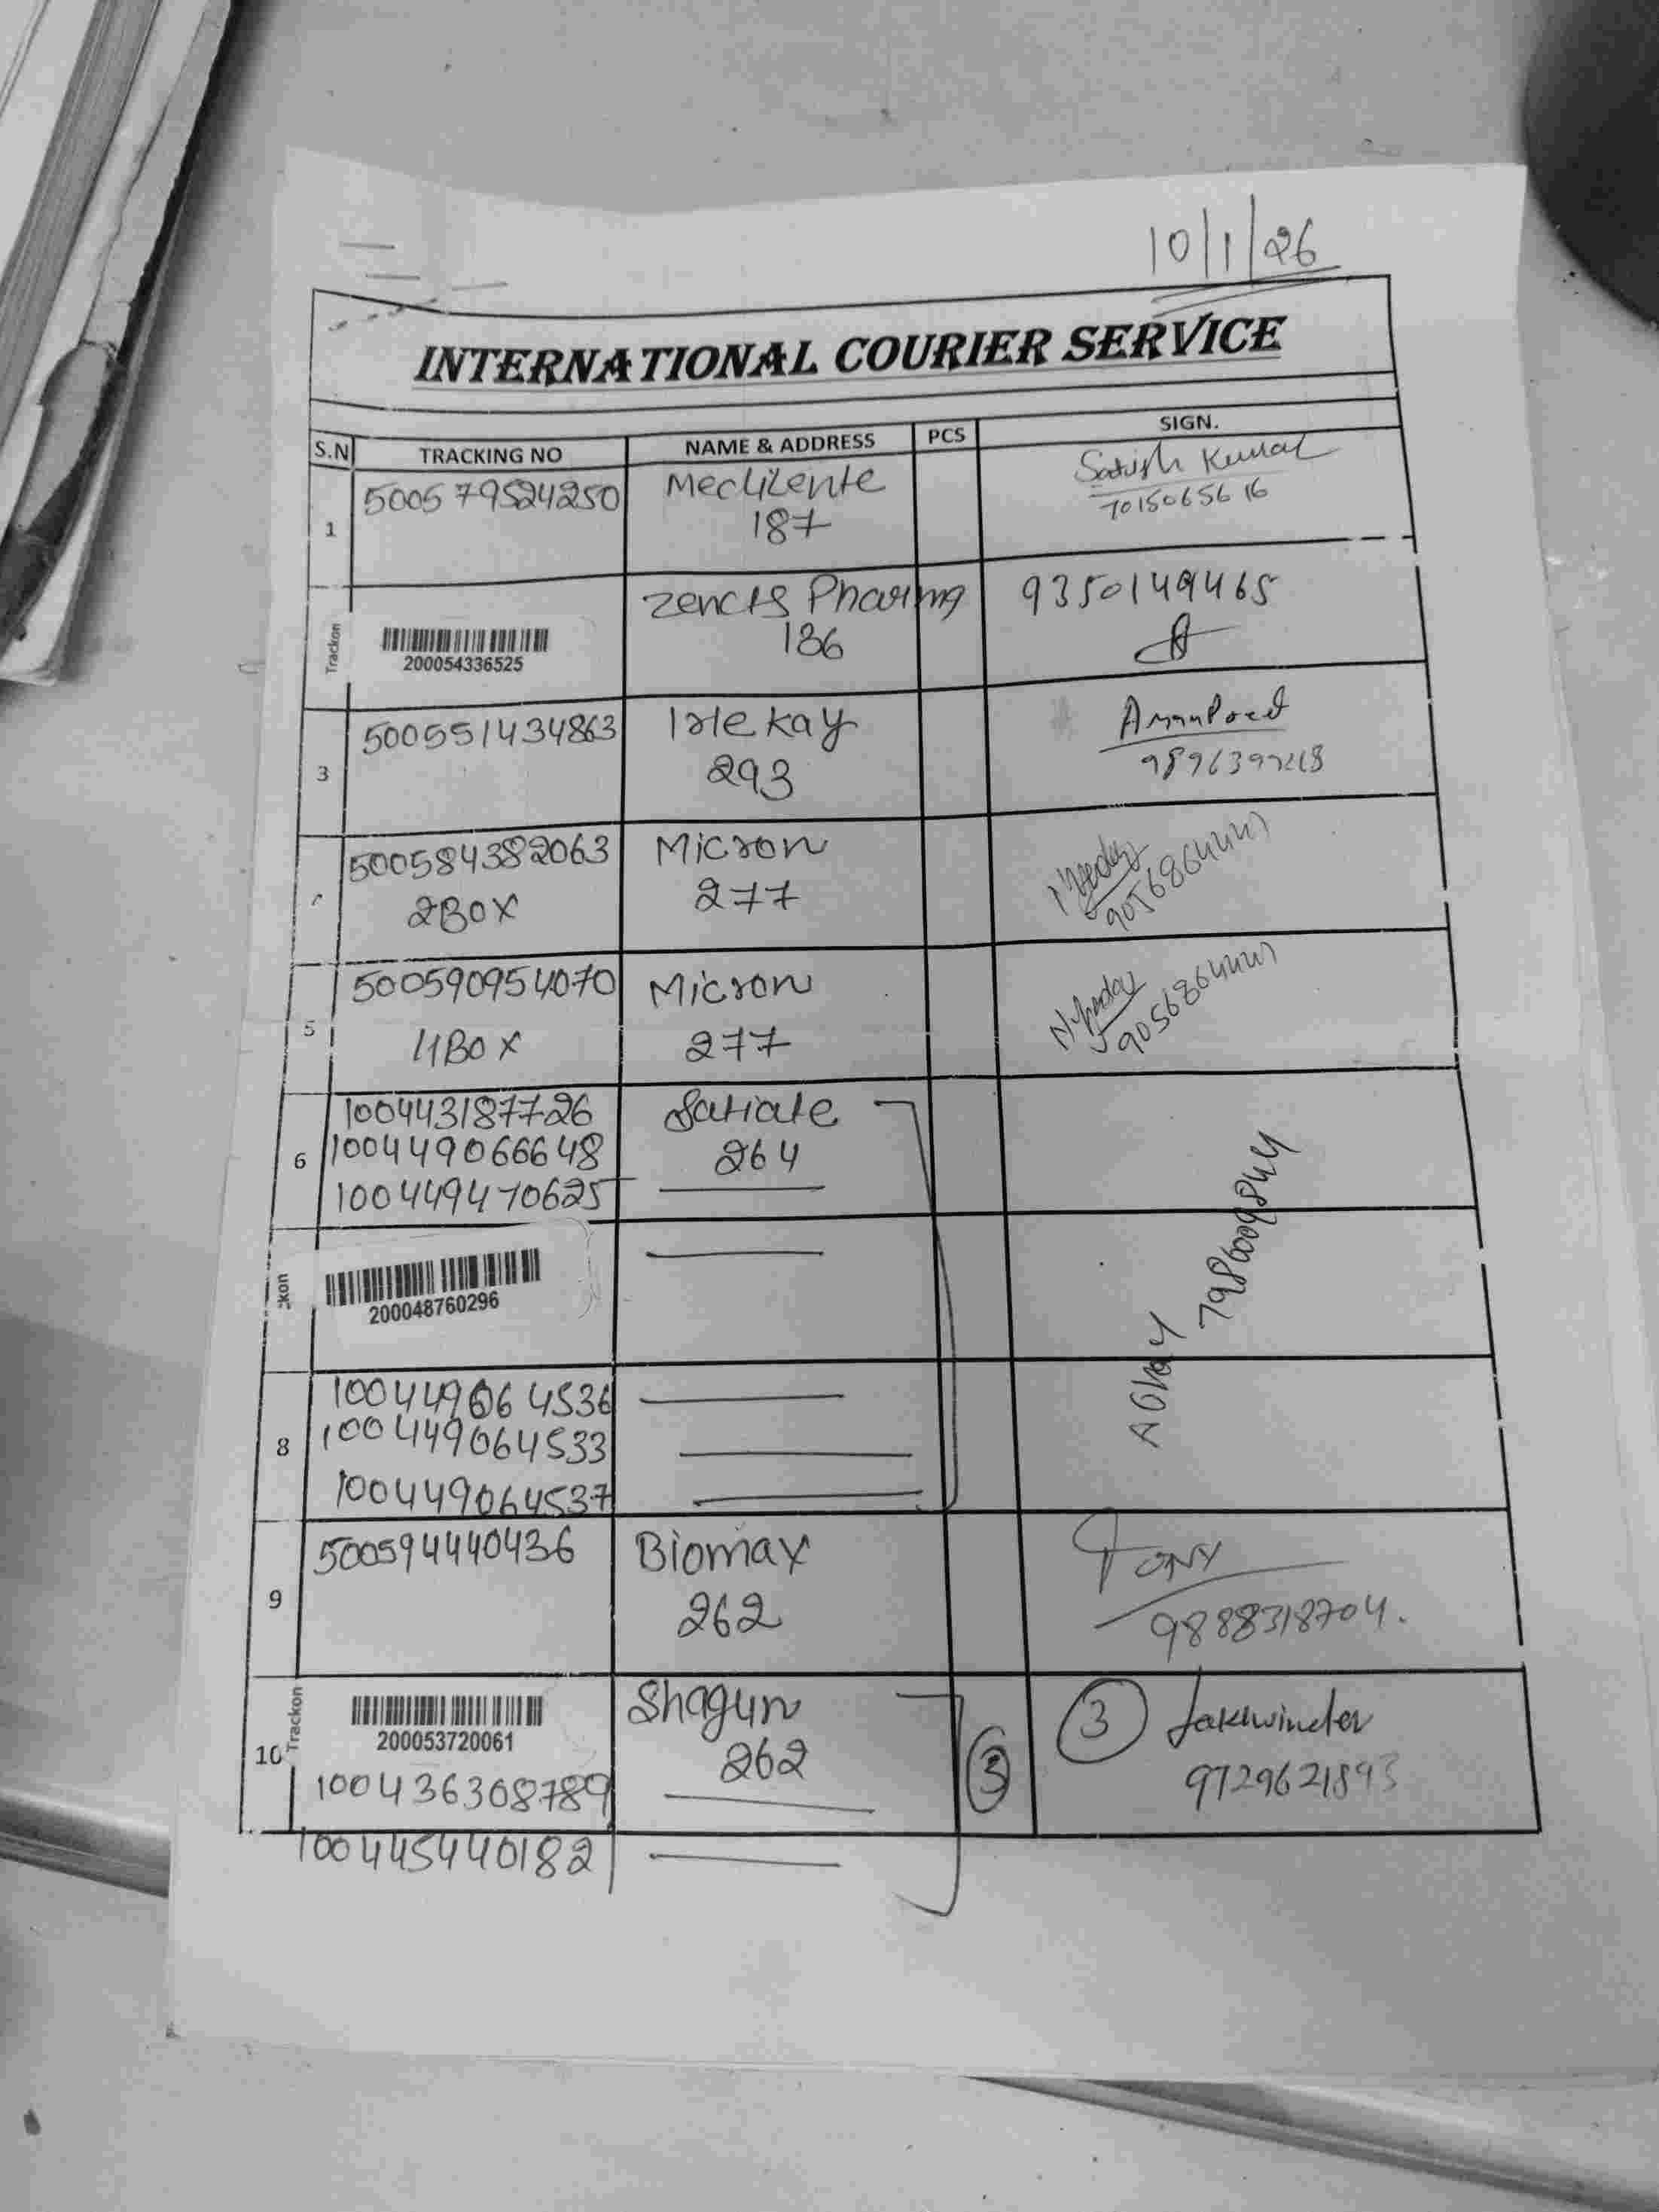 10/1/26
INTERNATIONAL COURIER SERVICE
S.N TRACKING NO NAME & ADDRESS PCS SIGN.
1 500579524250 Satish Kumar
187 7015065616
Pharma 9350149465
Trackon 200054336525 186
3 500551434863
293
500584382063 Micron
2BOX 277
5 500590954070 Micron
4BOX 277
6 100443187726 Satiate
100449066648 264
100449470625
ckon 200048760296
7986009844
8 100449064536
100449064533
100449064537
9 500594440436 Biomax Tony
262 9888318704.
10 Trackon 200053720061 Shagun 3 3 Lakhwinder
100436308789 262 9729621893
100445440182